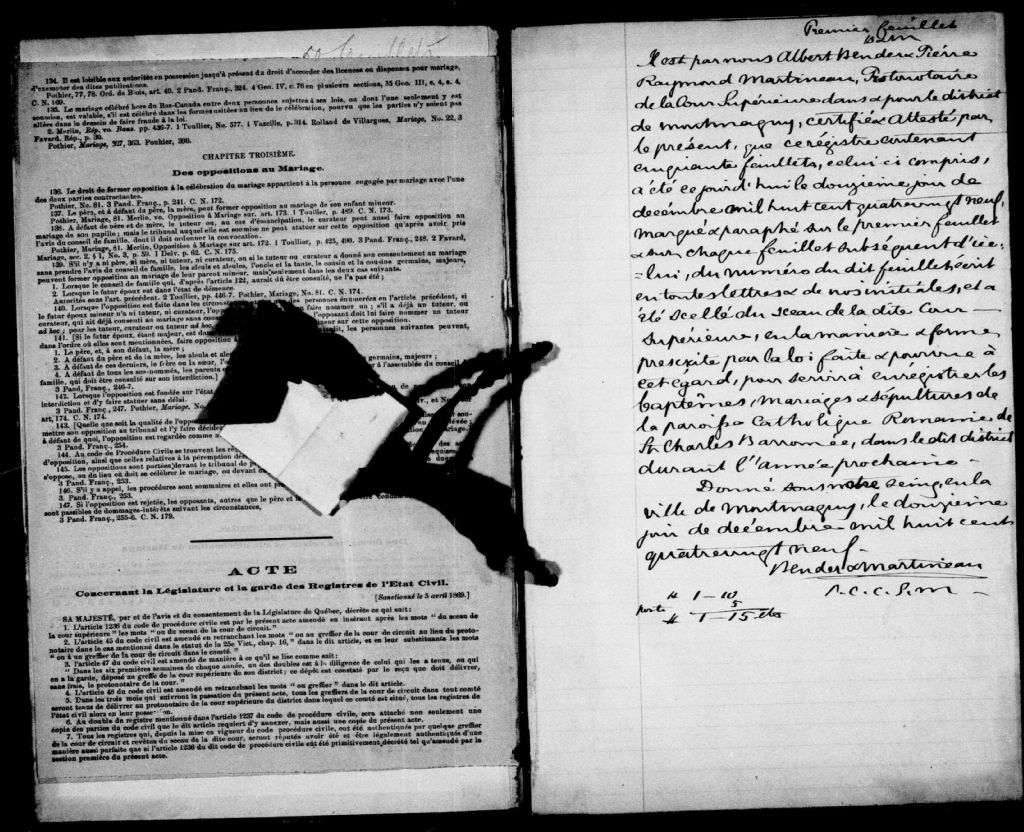 50 feuillets
134. Il est loisible aux autorités en possession jusqu'à présent du droit d'accorder des licences ou dispenses pour mariage,
d'exempter des dites publications.
Pothier, 77, 78. Ord. de Blois, art. 40. 2 Pand. Franç., 324. 4 Geo. IV, c. 76 en plusieurs sections, 35 Geo. III, c. 4, s. 4,
C. N. 169.
135. Le mariage célébré hors du Bas-Canada entre deux personnes sujettes à ses lois, ou dont l'une seulement y est
soumise, est valable, s'il est célébré dans les formes usitées au lieu de la célébration, pourvu que les parties n'y soient pas
allées dans le dessein de faire fraude à la loi.
2. Merlin, Rép. vo. Bans. pp. 436-7. 1 Toullier, No. 577. 1 Vazeille, p. 314. Rolland de Villargues, Mariage, No. 22, 3
Favard, Rép., p. 30.
Pothier, Mariage, 327, 363. Pouhier, 390.
CHAPITRE TROISIÈME.
Des oppositions au Mariage.
136. Le droit de former opposition à la célébration du mariage appartient à la personne engagée par mariage avec l'une
des deux parties contractantes.
Pothier, No. 81. 3 Pand. Franç., p. 241. C. N. 172.
137. Le père, et à défaut du père, la mère, peut former opposition au mariage de son enfant mineur.
Pothier, Mariage, 81. Merlin, vo. Opposition à Mariage sur. art. 173. 1 Toullier, p. 489. C. N. 173.
138. A défaut de père et de mère, le tuteur ou, au cas d'émancipation, le curateur peut aussi faire opposition au
mariage de son pupille; mais le tribunal auquel elle est soumise ne peut statuer sur cette opposition qu'après avoir pris
l'avis du conseil de famille, dont il doit ordonner la convocation.
Pothier, Mariage, 81. Merlin, Opposition à Mariage sur art. 172. 1 Toullier, p. 425, 490. 3 Pand. Franç., 248. 2 Favard,
Mariage, sec. 2, § 1, No. 3, p. 59. 1 Delv. p. 62. C. N. 175.
139. S'il n'y a ni père, ni mère, ni tuteur, ni curateur, ou si le tuteur ou curateur a donné son consentement au mariage
sans prendre l'avis du conseil de famille, les aïeuls et aïeules, l'oncle et la tante, le cousin et la cousine germains, majeurs,
peuvent former opposition au mariage de leur parent mineur, mais seulement dans les deux cas suivants.
1. Lorsque le conseil de famille qui, d'après l'article 122, aurait dû être consulté, ne l'a pas été;
2. Lorsque le futur époux est dans l'état de démence.
Autorités sous l'art. précédent. 2 Toullier, pp. 446-7. Pothier, Mariage, No. 81. C. N. 174.
140. Lorsque l'opposition est faite dans les circonst personnes énumérées en l'article précédent, si
le futur époux mineur n'a ni tuteur, ni curateur, l'oppo faire nommer un; s'il a déjà un tuteur ou
curateur, qui ait déjà consenti au mariage sans cons l'opposant doit lui faire nommer un tuteur
ad hoc; pour les tuteur, curateur ou tuteur ad hoc sur cette opposition.
141. [Si le futur époux, étant majeur, est dan dit, les personnes suivantes peuvent,
dans l'ordre où elles sont mentionnées, faire opposition à
1. Le père et, à son défaut, la mère;
2. A défaut du père et de la mère, les aïeuls et aïe
3. A défaut de ces derniers, le frère ou la sœur, l' germains, majeurs;
4. A défaut de tous les sus-nommés, les parents r à l'assemblée du conseil
famille, qui doit être consulté sur son interdiction.]
3 Pand. Franç., 246-7.
142. Lorsque l'opposition est fondée sur l'état
interdiction et d'y faire statuer sans délai.
3 Pand. Franç., 247. Pothier, Mariage, No.
art. 174. C. N. 174.
143. [Quelle que soit la qualité de l'oppos
mettre son opposition au tribunal et l'y faire décider
à défaut de quoi, l'opposition est regardée comme n
3 Pand. Franç., 254.
144. Au code de Procédure se trouvent les rè
d'opposition, ainsi que celles relatives à la péremption de
145. Les oppositions sont portées devant le tribunal de p
s'oppose, ou du lieu où doit se célébrer le mariage, ou devant
3 Pand. Franç., 253.
146. S'il y a appel, les procédures sont sommaires et elles ont pr
3 Pand. Franç., 253.
147. Si l'opposition est rejetée, les opposants, autres que le père et la
sont passibles de dommages-intérêts suivant les circonstances,
3 Pand. Franç., 255-6. C. N. 179.
ACTE
Concernant la Législature et la garde des Registres de l'Etat Civil.
[Sanctionné le 5 avril 1869.]
SA MAJESTÉ, par et de l'avis et du consentement de la Législature de Québec, décrète ce qui suit:
1. L'article 1236 du code de procédure civile est par le présent acte amendé en insérant après les mots "du sceau de
la cour supérieure" les mots "ou du sceau de la cour de circuit."
2. L'article 45 du code civil est amendé en retranchant les mots "ou au greffier de la cour de circuit au lieu du proto-
notaire dans le cas mentionné dans le statut de la 25e Vict., chap. 16," dans le dit article, et en leur substituant les mots
"ou à un greffier de la cour de circuit dans le comté."
3. l'article 47 du code civil est amendé de manière à ce qu'il se lise comme suit:
"Dans les six premières semaines de chaque année, un des doubles est à la diligence de celui qui les a tenus, ou qui
en a la garde, déposé au greffe de la cour supérieure de son district; ce dépôt est constaté par le reçu que doit délivrer,
sans frais, le protonotaire de la cour."
4. L'article 48 du code civil est amendé en retranchant les mots "ou greffier" dans le dit article.
5. Dans les trois mois qui suivront la passation du présent acte, tous les greffiers de la cour de circuit dans tout comté
seront tenus de délivrer au protonotaire de la cour supérieure du district dans lequel ce comté est situé, tous les registres de
l'état civil alors en leur possession.
6. Au double du registre mentionné dans l'article 1237 du code de procédure civile, sera attaché non seulement une
copie des parties du code civil que le dit article requiert d'y annexer, mais aussi une copie du présent acte.
7. Tous les registres qui, depuis la mise en vigueur du code procédure civile, ont été authentiqués par quelque greffier
de la cour de circuit et revêtus du sceau de la dite cour, seront réputés avoir été et être légalement authentiqués d'une
manière aussi parfaite que si l'article 1236 du dit code de procédure civile eût été primitivement décrété tel qu'amendé par la
section première du présent acte.
Premier feuillet
B&M
Il est par nous Albert Bender & Pierre
Raymond Martineau, Protonotaire
de la Cour Supérieure dans & pour le district
de Montmagny, certifié & attesté par
le présent, que ce régistre contenant
cinquante feuillets, celui ci compris,
a été ce jour d'hui le douzieme jour de
decémbre mil huit cent quatrevingt neuf,
marqué & paraphé sur le premier feuillet
& sur chaque feuillet subséquent d'ice-
lui, du numéro du dit feuillet écrit
en toutes lettres & de nos initiales, et a
été scellé du sceau de la dite Cour
Supérieure, en la manière & forme
prescrite par la loi faite & pourvue à
cet égard, pour servir à enregistrer les
baptêmes, mariages & sépultures de
la paroisse Catholique Romaine de
St Charles Barromée, dans le dit district
durant l'année prochaine -
Donné sous notre seing, en la
ville de Montmagny, le douzieme
jour de decémbre mil huit cent
quatrevingt neuf.
Bender & Martineau
P. C. S. M
" 1-10
porte 5
" 1-15 cts